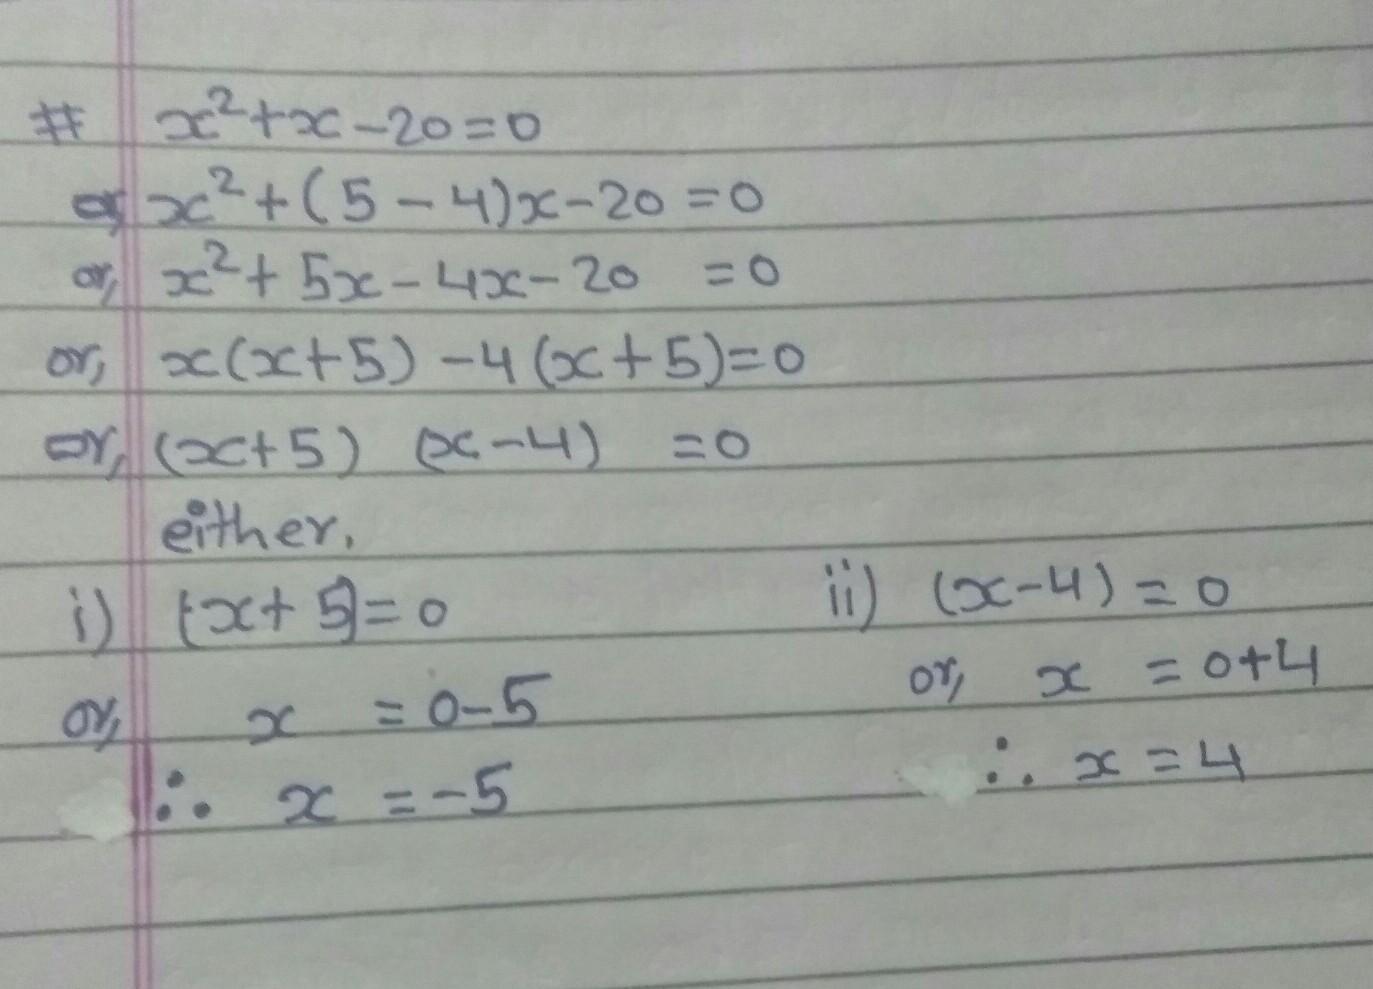 # x² + x - 20 = 0
or, x² + (5 - 4)x - 20 = 0
or, x² + 5x - 4x - 20 = 0
or, x(x + 5) - 4(x + 5) = 0
or, (x + 5) (x - 4) = 0
either,
i) (x + 5) = 0
or, x = 0 - 5
∴ x = -5
ii) (x - 4) = 0
or, x = 0 + 4
∴ x = 4